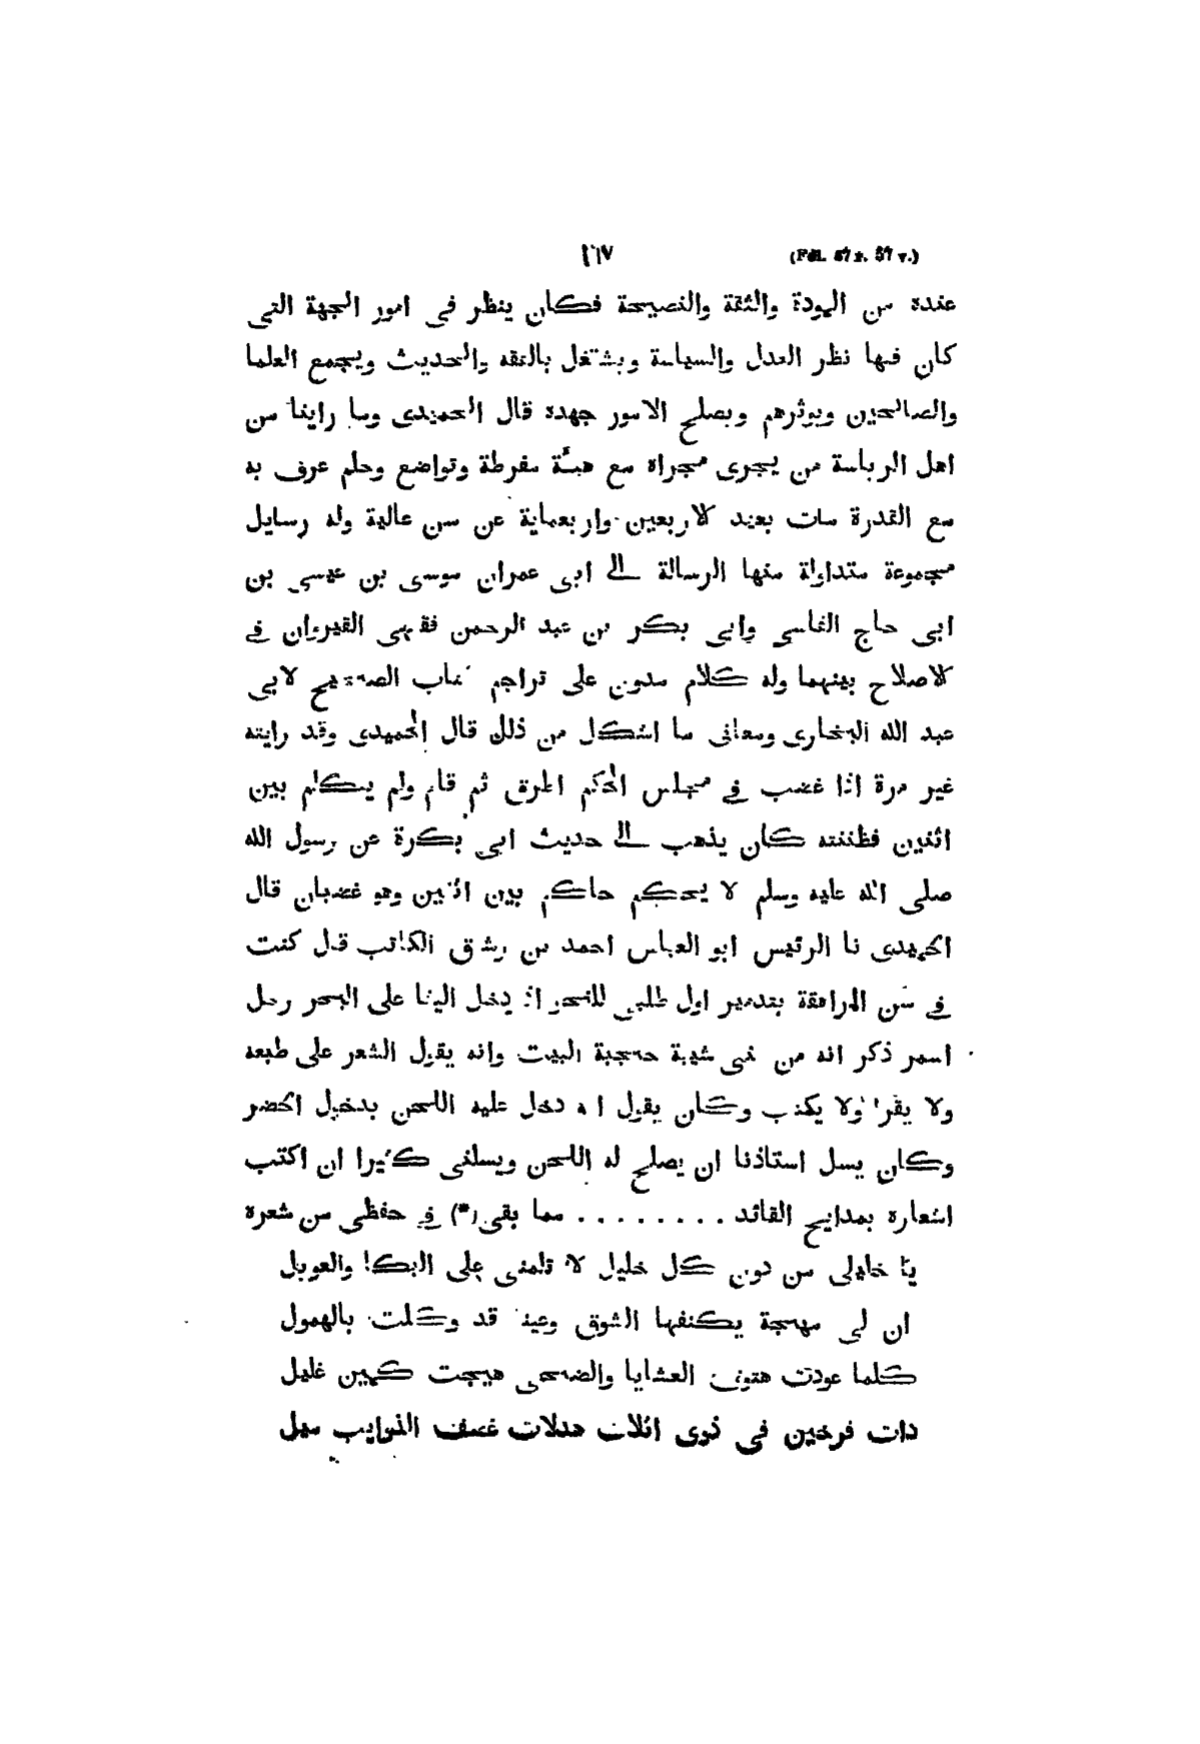 (Fól. 57 r. 57 v.) ١٦٧
عنده من المودة والثقة والنصيحة فكان ينظر فى امور الجهة التى
كان فيها نظر العدل والسياسة ويشتغل بالفقه والحديث ويجمع العلما
والصالحين ويوثرهم ويصلح الامور جهده قال الحميدى وما راينا من
اهل الرياسة من يجرى مجراه مع هيئة مفرطة وتواضع وحلم عرف به
مع القدرة مات بعيد الاربعين واربعماية عن سن عالية وله رسايل
مجموعة متداولة منها الرسالة الى ابى عمران موسى بن عيسى بن
ابى حاج الفاسى وابى بكر بن عبد الرحمن فقيهى القيروان فى
الاصلاح بينهما وله كلام مدون على تراجم كتاب الصحيح لابى
عبد الله البخارى ومعانى ما اشكل من ذلك قال الحميدى وقد رايته
غير مرة اذا غضب فى مجلس الحكم اطرق ثم قام ولم يحكم بين
اثنين فظننته كان يذهب الى حديث ابى بكرة عن رسول الله
صلى الله عليه وسلم لا يحكم حاكم بين اثنين وهو غضبان قال
الحميدى نا الرئيس ابو العباس احمد بن رشيق الكاتب قال كنت
فى سن المراهقة بتدمير اول طلبى للنحو اذ دخل الينا على البحر رجل
اسمر ذكر انه من بنى شيبة حجبة البيت وانه يقول الشعر على طبعه
ولا يقرا ولا يكتب وكان يقول انه دخل عليه اللحن بدخول الحضر
وكان يسل استاذنا ان يصلح له اللحن ويسلنى كثيرا ان اكتب
اشعاره بمدايح القائد ........ مما بقى (*) فى حفظى من شعره
يا خليلى من دون كل خليل لا تلمنى على البكا والعويل
ان لى مهجة يكنفها الشوق وعينا قد وكلت بالهمول
كلما غردت هتوف العشايا والضحى هيجت كمين غليل
ذات فرخين فى ذرى اثلات هدلات غصف الذوايب ميل